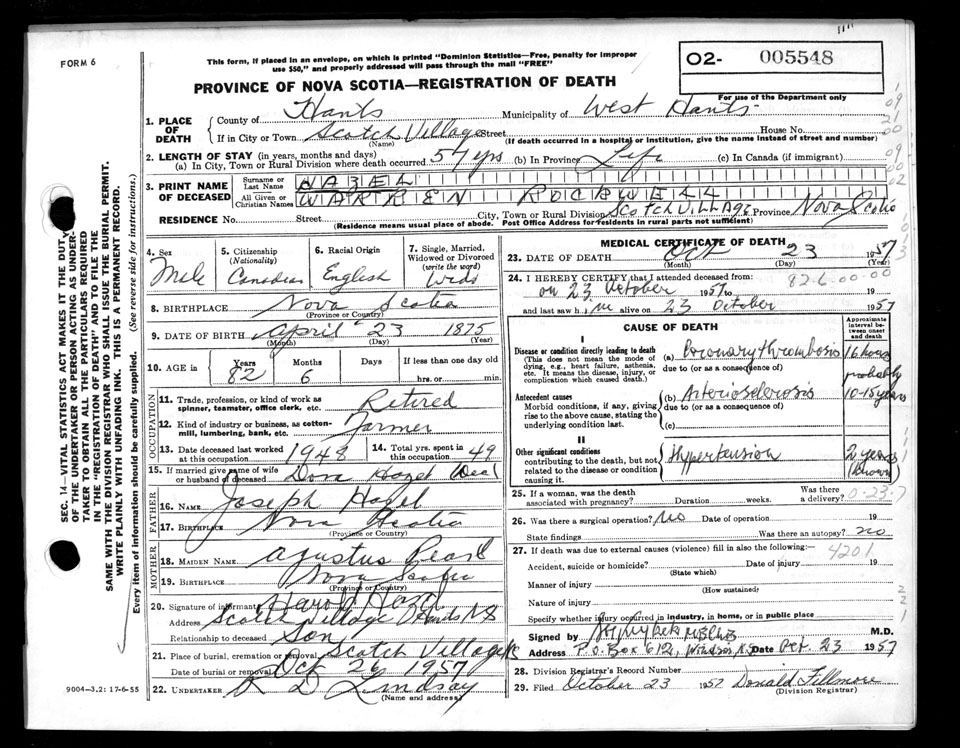 FORM 6
This form, if placed in an envelope, on which is printed "Dominion Statistics—Free, penalty for improper
use $50," and properly addressed will pass through the mail "FREE"
PROVINCE OF NOVA SCOTIA—REGISTRATION OF DEATH
02- 005548
For use of the Department only
1. PLACE OF DEATH
County of Hants Municipality of West Hants
If in City or Town Scotch Village Street House No.
(Name) (If death occurred in a hospital or institution, give the name instead of street and number)
2. LENGTH OF STAY (in years, months and days)
(a) In City, Town or Rural Division where death occurred 57 yrs (b) In Province Life (c) In Canada (if immigrant)
3. PRINT NAME OF DECEASED
Surname or Last Name HAZEL
All Given or Christian Names WARREN ROCKWELL
RESIDENCE No. Street City, Town or Rural Division SCOTCH VILLAGE Province Nova Scotia
(Residence means usual place of abode. Post Office Address for residents in rural parts not sufficient)
4. Sex Male
5. Citizenship (Nationality) Canadian
6. Racial Origin English
7. Single, Married, Widowed or Divorced (write the word) Wid
8. BIRTHPLACE Nova Scotia
(Province or Country)
9. DATE OF BIRTH April 23 1875
(Month) (Day) (Year)
10. AGE in Years 82 Months 6 Days If less than one day old hrs. or min.
OCCUPATION
11. Trade, profession, or kind of work as spinner, teamster, office clerk, etc. Retired
12. Kind of industry or business, as cotton-mill, lumbering, bank, etc. Farmer
13. Date deceased last worked at this occupation 1948
14. Total yrs. spent in this occupation 49
15. If married give name of wife or husband of deceased Dora Hazel Dead
FATHER
16. NAME Joseph Hazel
17. BIRTHPLACE Nova Scotia
(Province or Country)
MOTHER
18. MAIDEN NAME Agustus Pearl
19. BIRTHPLACE Nova Scotia
(Province or Country)
20. Signature of informant Harold Hazel
Address Scotch Village Hants NS
Relationship to deceased Son
21. Place of burial, cremation or removal Scotch Village
Date of burial or removal Oct 26 1957
22. UNDERTAKER R D Lindsay
(Name and address)
MEDICAL CERTIFICATE OF DEATH
23. DATE OF DEATH Oct 23 1957
(Month) (Day) (Year)
24. I HEREBY CERTIFY that I attended deceased from 82-6-00-00
on 23 October 1957 to 19
and last saw h im alive on 23 October 1957
CAUSE OF DEATH
Approximate interval between onset and death
I
Disease or condition directly leading to death
(This does not mean the mode of dying, e.g., heart failure, asthenia, etc. It means the disease, injury, or complication which caused death.)
(a) Coronary thrombosis 16 hours
due to (or as a consequence of)
Antecedent causes
Morbid conditions, if any, giving rise to the above cause, stating the underlying condition last.
(b) Arteriosclerosis probably 10-15 years
due to (or as a consequence of)
(c)
II
Other significant conditions
contributing to the death, but not related to the disease or condition causing it.
Hypertension 2 years (known)
25. If a woman, was the death associated with pregnancy? Duration weeks. Was there a delivery?
26. Was there a surgical operation? No Date of operation 19
State findings Was there an autopsy? no
27. If death was due to external causes (violence) fill in also the following:— 4201
Accident, suicide or homicide? Date of injury 19
(State which)
Manner of injury
(How sustained)
Nature of injury
Specify whether injury occurred in industry, in home, or in public place
Signed by M.D.
Address P.O. Box 612, Windsor, N.S. Date Oct. 23 1957
28. Division Registrar's Record Number
29. Filed October 23 1957 Donald Fillmore
(Division Registrar)
9004—3.2: 17-6-55
SEC. 14—VITAL STATISTICS ACT MAKES IT THE DUTY
OF THE UNDERTAKER OR PERSON ACTING AS UNDER-
TAKER TO OBTAIN ALL THE PARTICULARS REQUIRED
IN THE "REGISTRATION OF DEATH" AND TO FILE THE
SAME WITH THE DIVISION REGISTRAR WHO SHALL ISSUE THE BURIAL PERMIT.
WRITE PLAINLY WITH UNFADING INK. THIS IS A PERMANENT RECORD.
Every item of information should be carefully supplied. (See reverse side for instructions.)